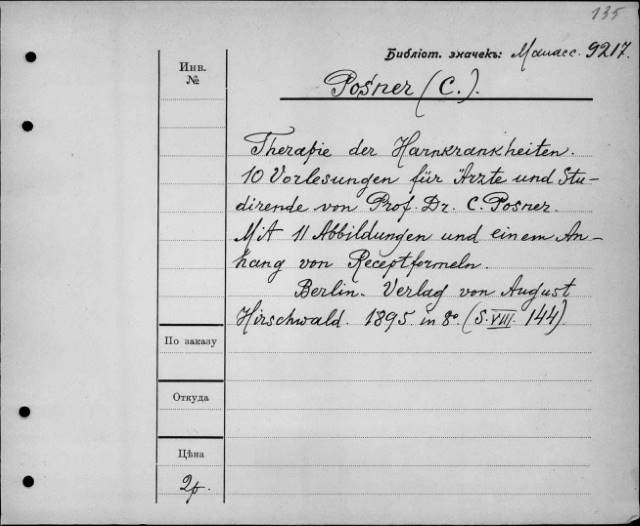 135
Библіот. значекъ: Манасс. 9217.
Инв.
№
Posner (C.).
Therapie der Harnkrankheiten.
10 Vorlesungen für Ärzte und Stu-
dirende von Prof. Dr. C. Posner.
Mit 11 Abbildungen und einem An-
hang von Receptformeln.
Berlin. Verlag von August
Hirschwald. 1895. in 8º. (S. VIII. 144).
По заказу
Откуда
Цѣна
2р.